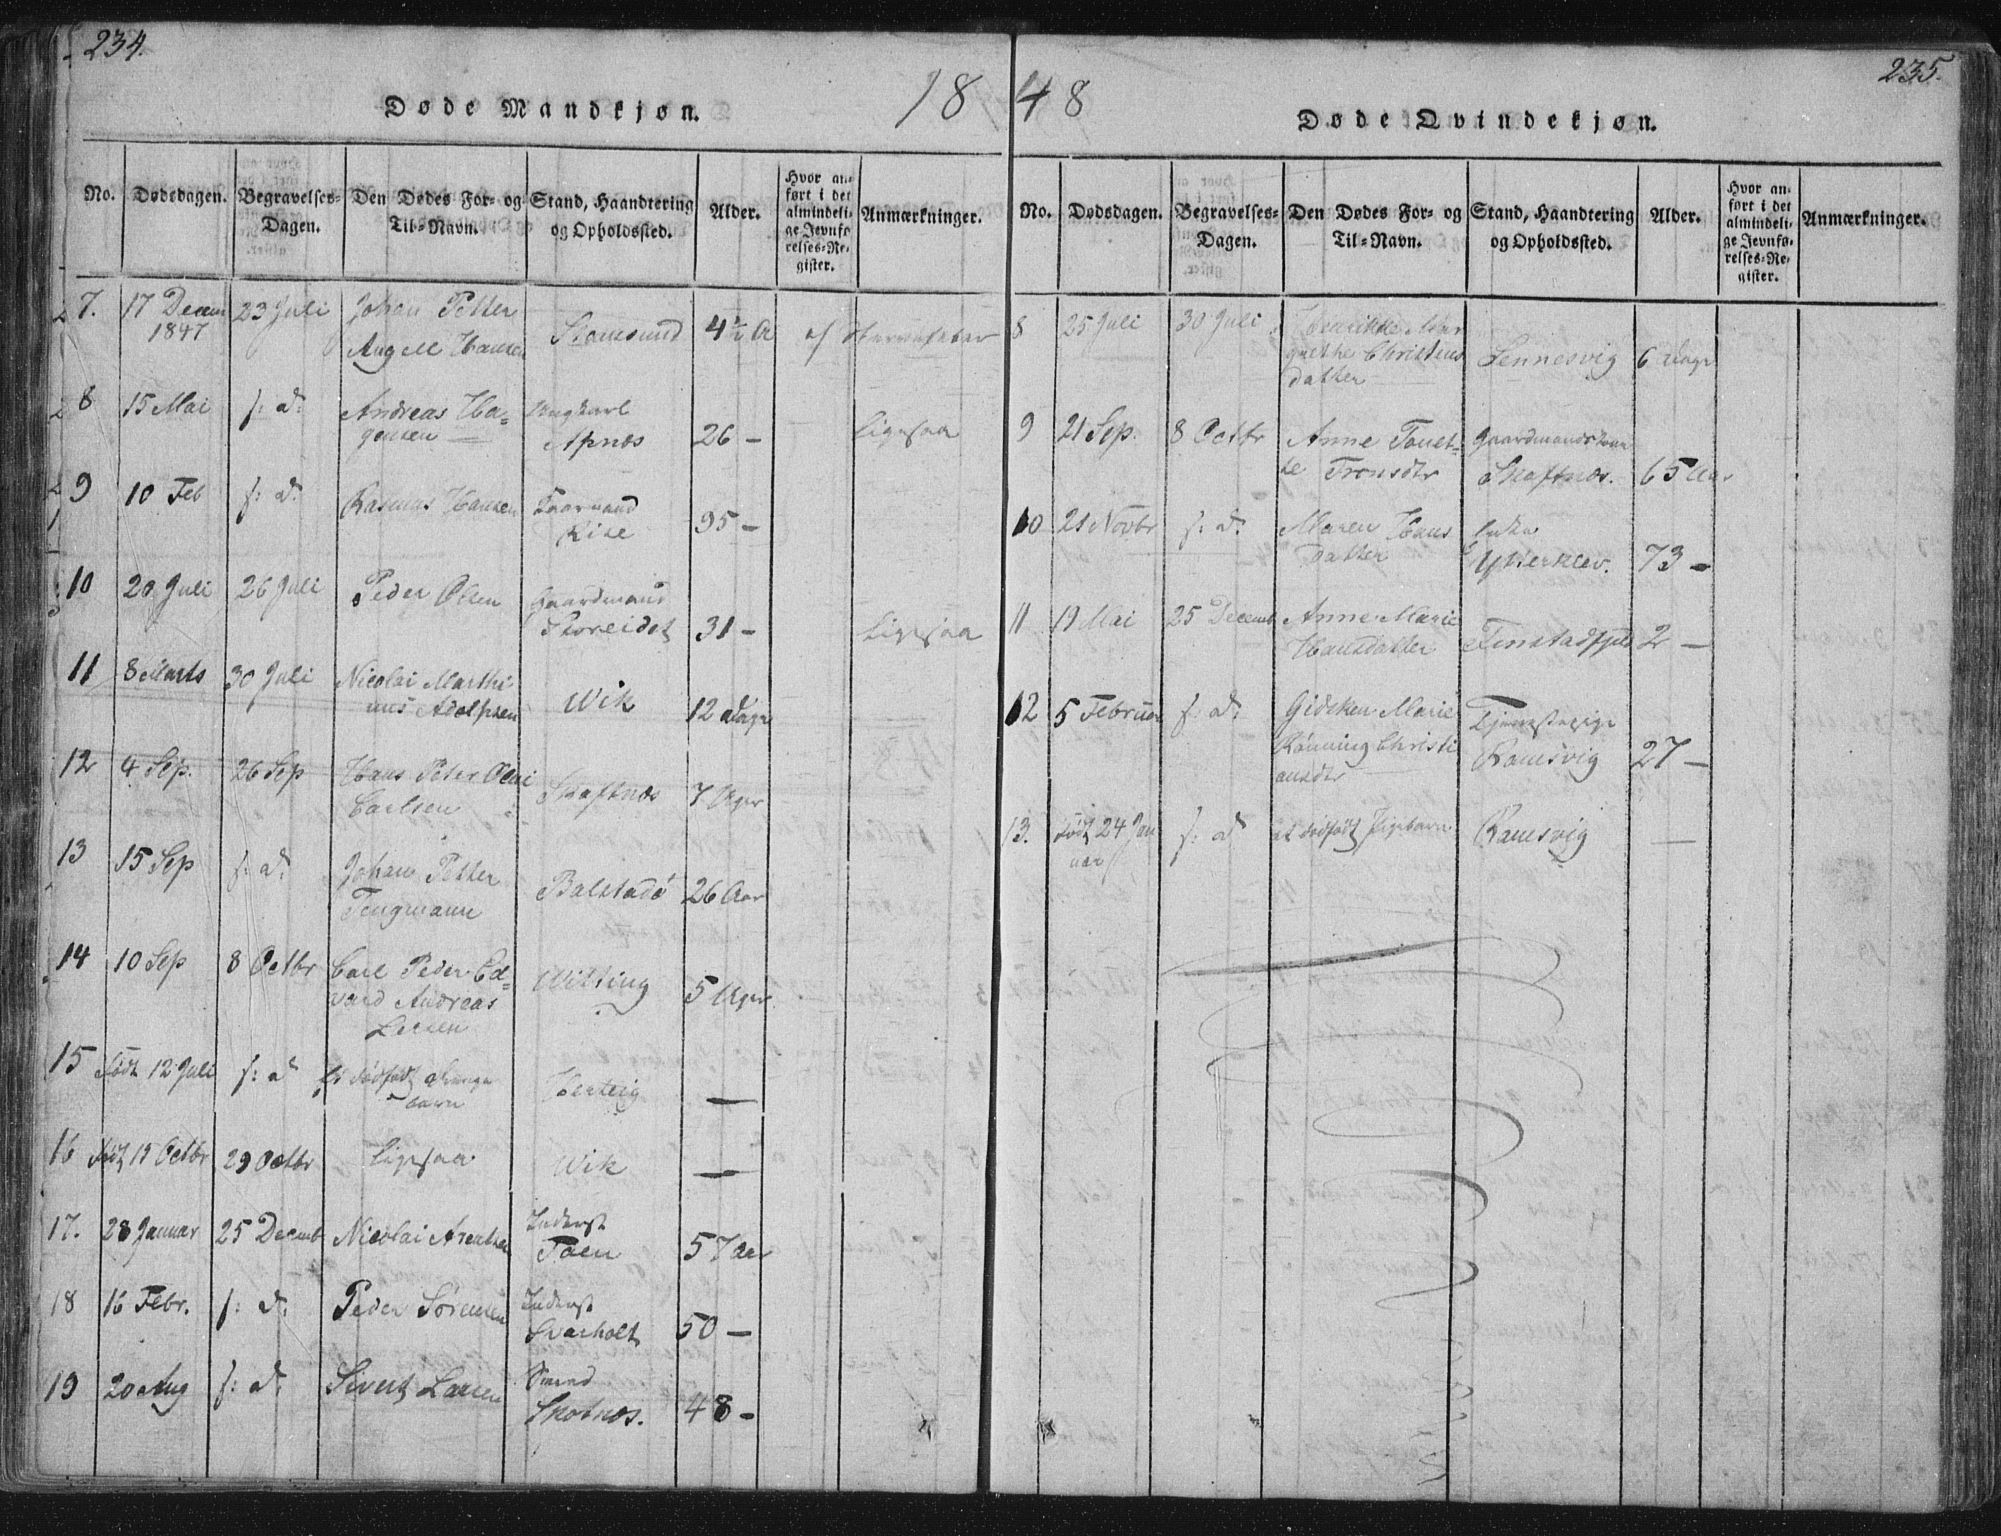 234.
18
Døde Mandkjøn.
No.
Dødsdagen.
Begravelses-
Dagen.
Den Dødes For- og
Til-Navn.
Stand, Haandtering
og Opholdssted.
Alder.
Hvor an-
ført i det
almindeli-
ge Jevnfø-
relses-Re-
gister.
Anmærkninger.
7. 17 Decem 23 Juli Johan Petter
1847 Angell Hansen Stamsund 4½ A
8 15 Mai s: d: Andreas Ha-
gensen Ungkarl
Apnæs 26 – Ligesaa
9 10 Feb s: d: Rasmus Hansen
95 –
10 20 Juli 26 Juli Peder Olsen Gaardmand
Storeidet 31 – Ligesaa
11 8 Marts 30 Juli Nicolai Marthi
nus Adolphsen Wik 12 Dage
12 4 Sep. 26 Sep Hans Peter Olai
Carlsen Skaftnæs 7 Uger
13 15 Sep s: d: Johan Petter
Tengmann Balstad 26 Aar
14 10 Sep 8 Octbr Carl Peder Ed-
vard Andreas
Larsen 5 Uger
15 Født 12 Juli s: d Et dødfødt Drenge
barn —
16 Født 19 Octbr 29 Octbr Ligesaa Wik —
17. 28 Januar 25 Decemb Nicolai Arentsen Inderst
Toen 57 Aar
18 16 Febr. s: d: Peder Sørensen Inderst
Svarholt 50 –
19 20 Aug s: d: Sivert Larsen
Skotnæs. 48 –
235.
48
Døde Qvindekjøn.
No.
Dødsdagen.
Begravelses-
Dagen.
Den Dødes For- og
Til-Navn.
Stand, Haandtering
og Opholdssted.
Alder.
Hvor an-
ført i det
almindeli-
ge Jevnfø-
relses-Re-
gister.
Anmærkninger.
8 25 Juli 30 Juli Mar
grethe Christens
datter Sennesvig 6 Dage
9 21 Sep. 8 Octbr Anne Tonet-
te Tronsdtr Gaardmandskone
Skaftnæs. 65 Aar
10 21 Novbr s: d: Maren Hans
datter Enke
73 –
11 19 Mai 25 Decemb Anne Marie
Hansdatter Finstadfjeld 2 –
12 5 Februar s: d: Gidsken Marie
Rønning Christi
ansdtr Tjenestepige
Ramsvig 27 –
13. Født 24 Jan
uar s: d et dødfødt Pigebarn Ramsvig —